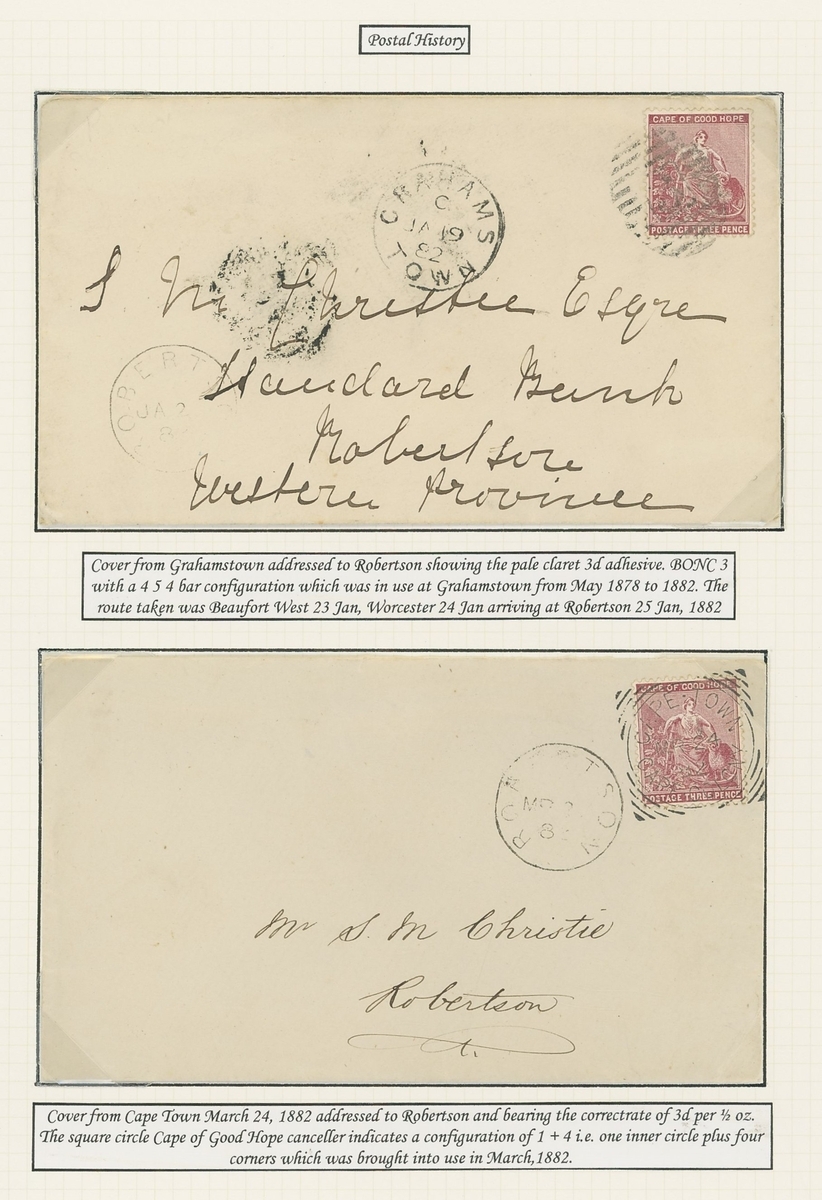 Postal History
CAPE OF GOOD HOPE
POSTAGE THREE PENCE
GRAHAMSTOWN
C
JA 19
82
S M Christie Esqre
Standard Bank
Robertson
Western Province
ROBERT
JA 2
8
Cover from Grahamstown addressed to Robertson showing the pale claret 3d adhesive. BONC 3
with a 4 5 4 bar configuration which was in use at Grahamstown from May 1878 to 1882. The
route taken was Beaufort West 23 Jan, Worcester 24 Jan arriving at Robertson 25 Jan, 1882
CAPE OF GOOD HOPE
POSTAGE THREE PENCE
RO TSON
MR 2
8
Mr S. M Christie
Robertson
Cover from Cape Town March 24, 1882 addressed to Robertson and bearing the correctrate of 3d per ½ oz.
The square circle Cape of Good Hope canceller indicates a configuration of 1 + 4 i.e. one inner circle plus four
corners which was brought into use in March,1882.